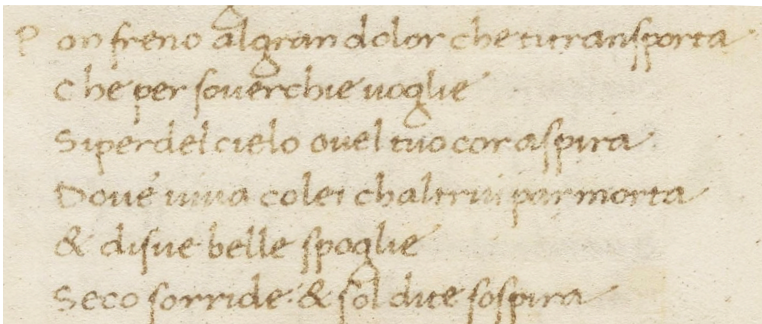 Pon freno al gran dolor che ti transporta
Che per soverchie uoglie
Si perde l cielo ove l tuo cor aspira
Dove uiua colei chaltrui par morta
& di sue belle spoglie
Seco sorride: & sol di te sospira